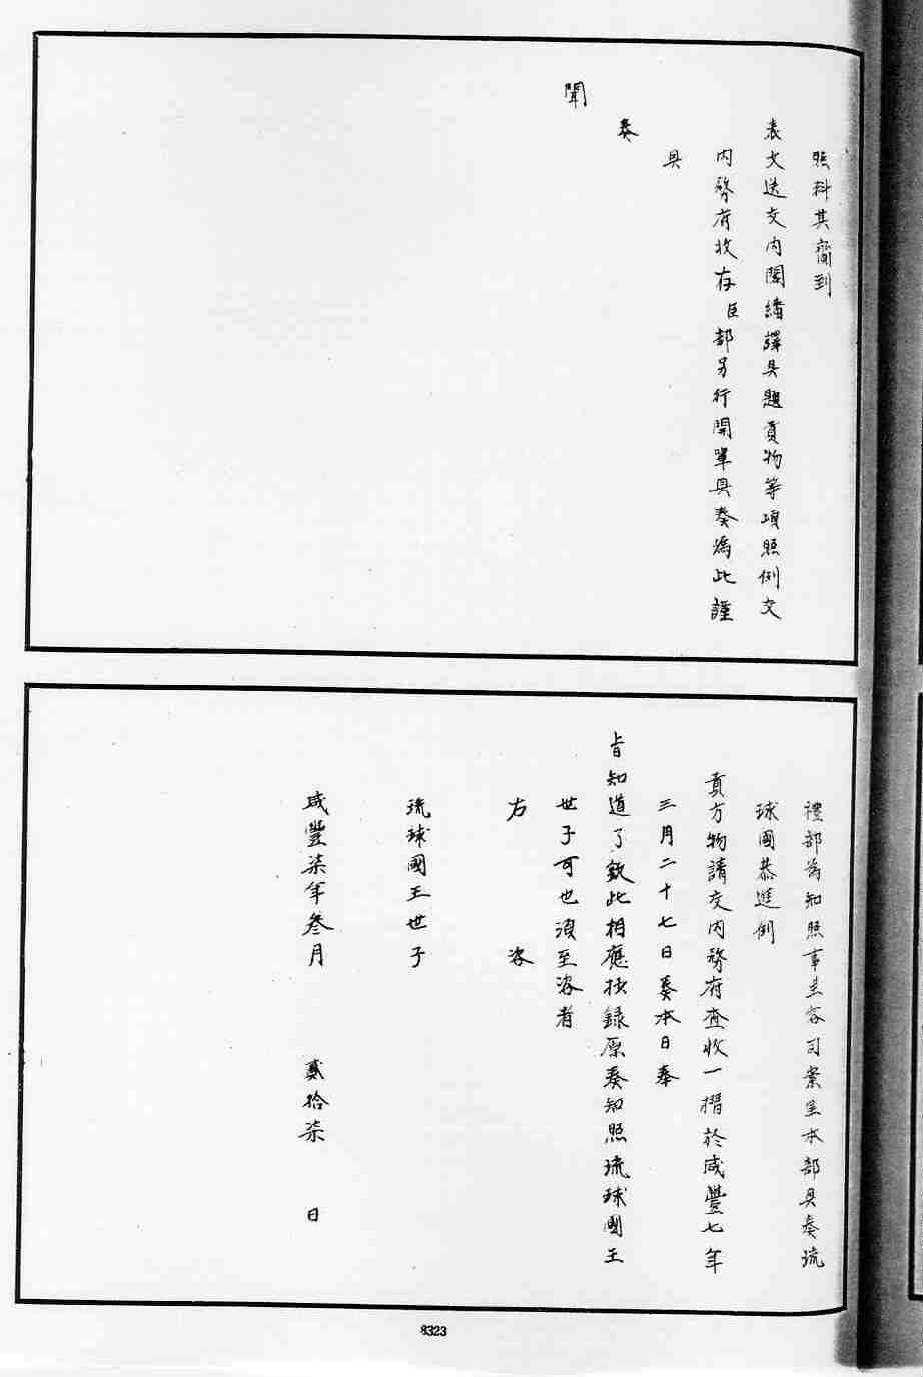 照料其齎到
表文送交内閣繙譯具題貢物等項照例交
内務府收存臣部另行開單具奏為此謹
具
奏
聞
禮部為知照事主客司案呈本部具奏琉
球國恭進例
貢方物請交内務府查收一摺於咸豐七年
三月二十七日具奏本日奉
旨知道了欽此相應抄錄原奏知照琉球國王
世子可也須至咨者
右咨
琉球國王世子
咸豐柒年叁月貳拾柒日
8323